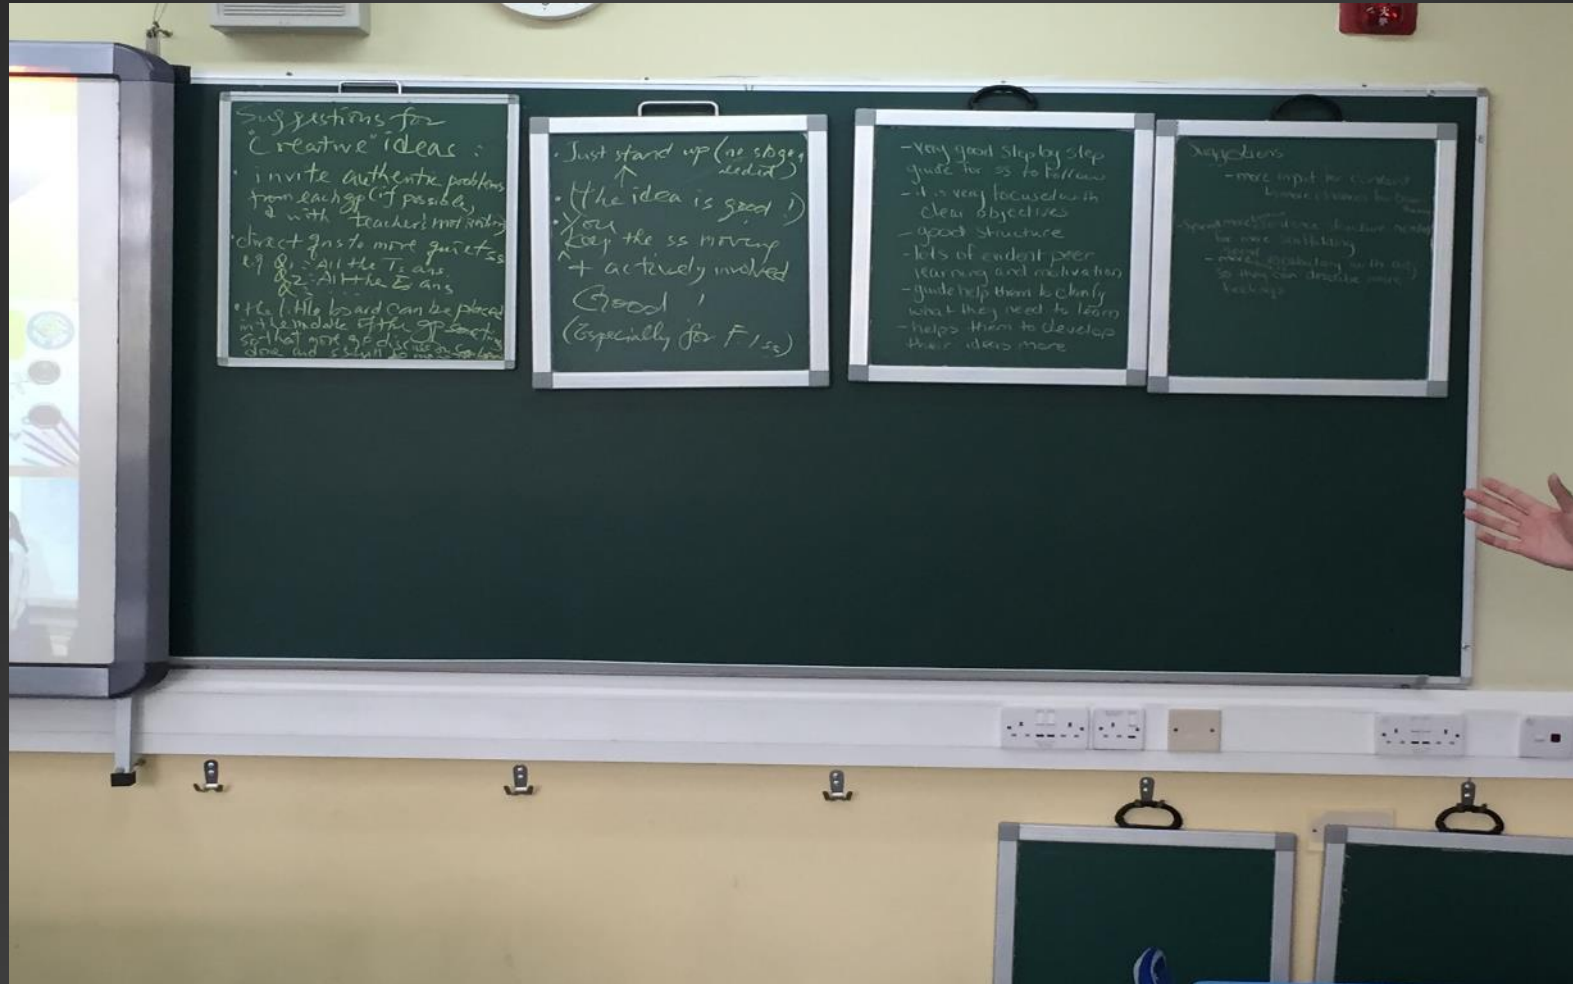 Suggestions for
"Creative" ideas:
• invite authentic problems
from each gp (if possible)
with teacher's
• direct qns to more quiet ss
eg Q1: All the Ts ans
Q2: All the Es ans
• the little board can be placed
in the middle of the gp
so that more gp
done and ss will
• Just stand up (no stage
needed)
↑
• (the idea is good!)
• You
keep the ss moving
^ + actively involved
Good!
(Especially for F1 ss)
- very good step by step
guide for ss to follow
- it is very focused with
clear objectives
- good structure
- lots of evident peer
learning and motivation
- guide help them to clarify
what they need to learn
- helps them to develop
their ideas more
Suggestions
- more input for content
sentence structure
for more scaffolding
vocabulary
so they can describe more
feelings